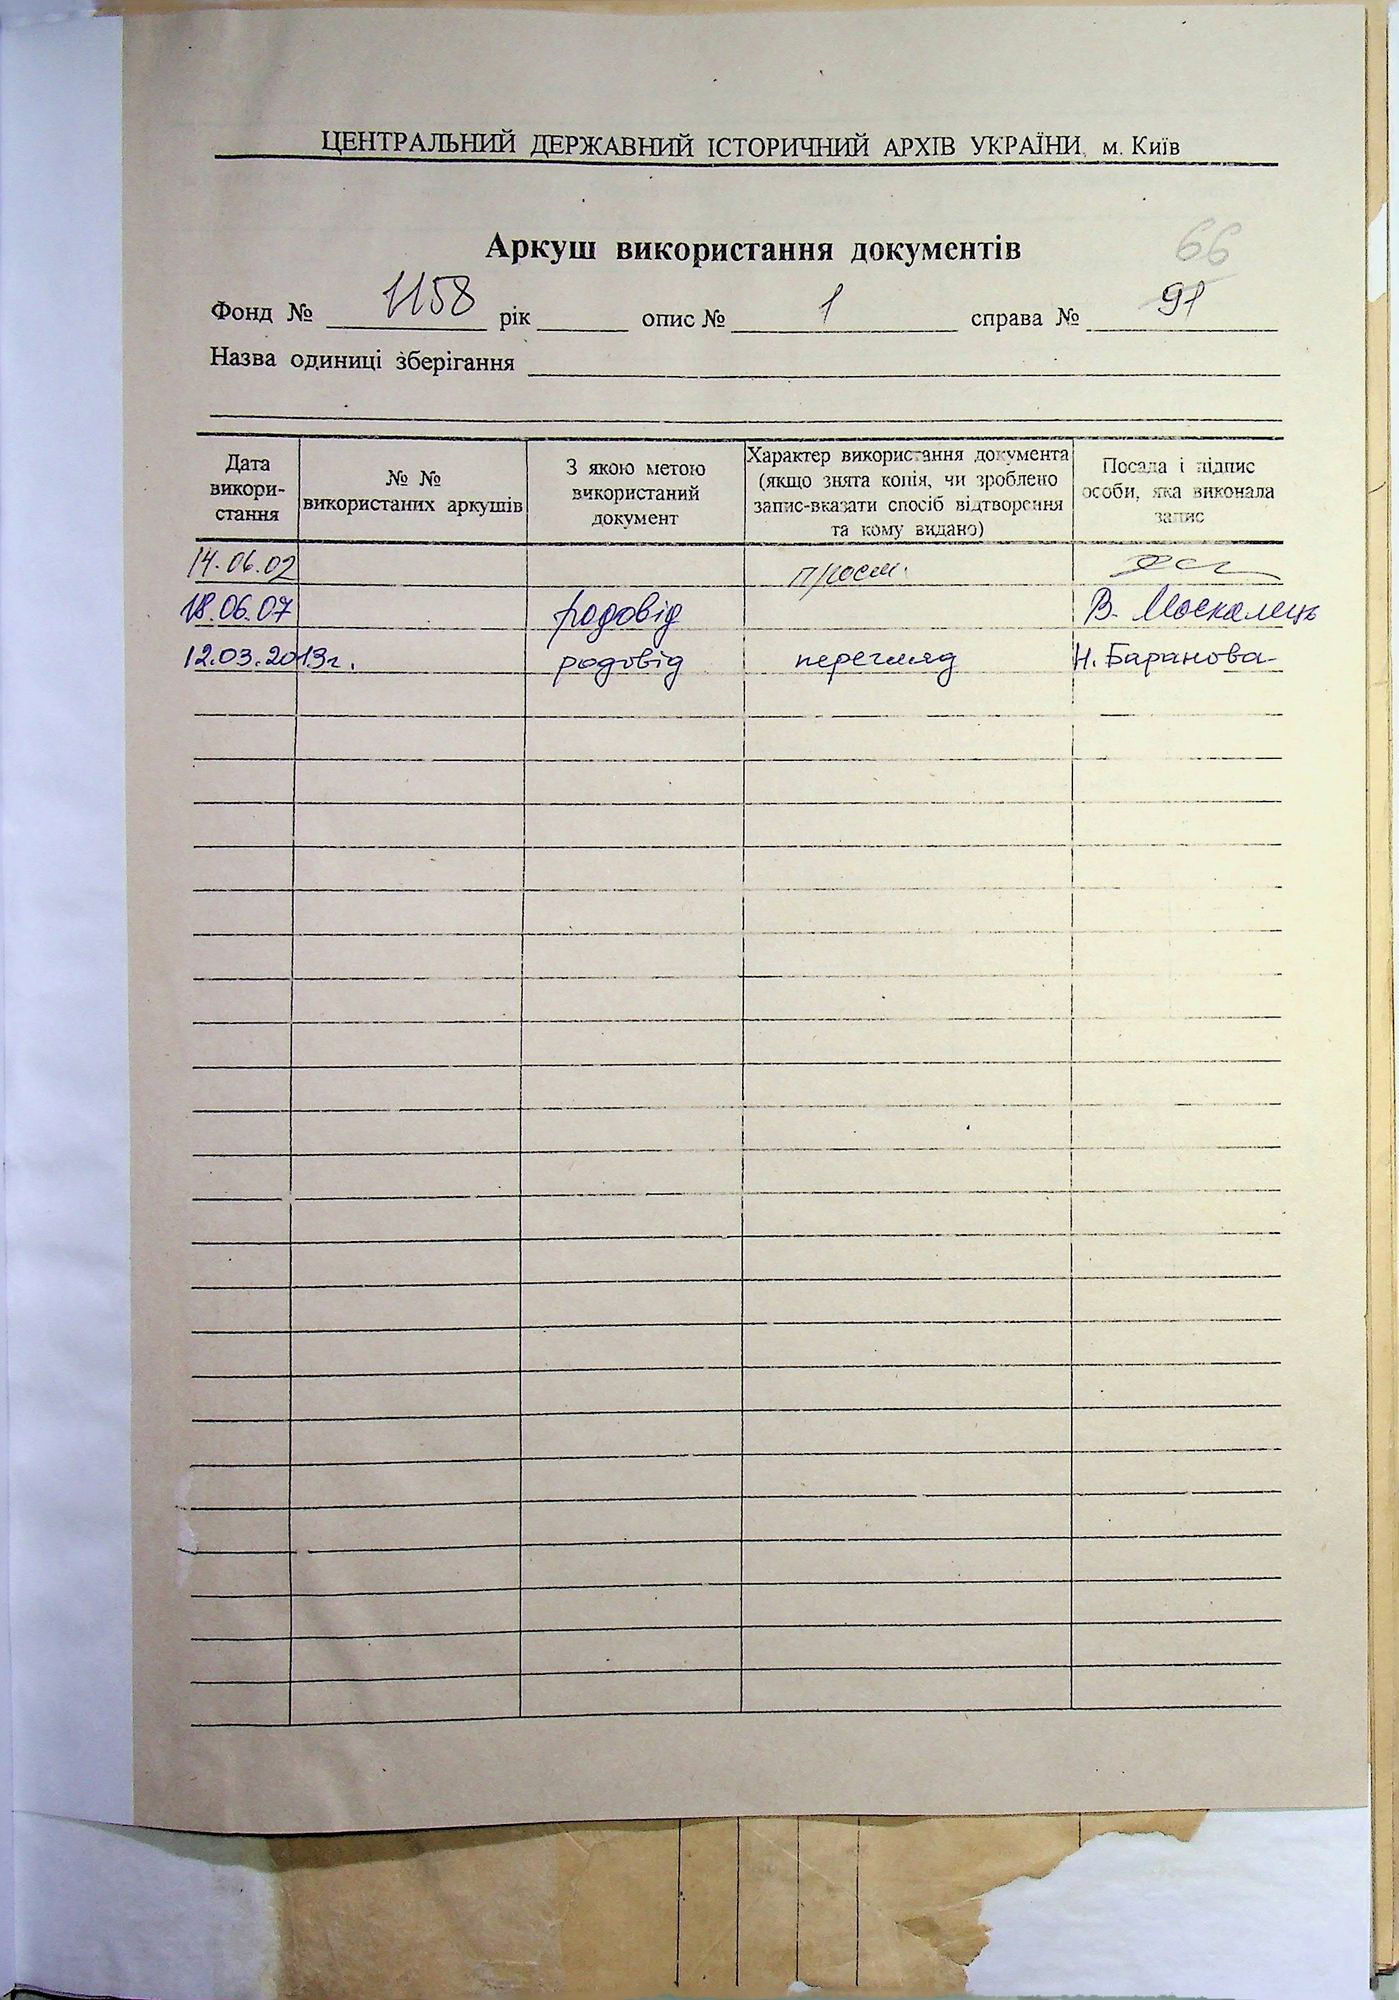 ЦЕНТРАЛЬНИЙ ДЕРЖАВНИЙ ІСТОРИЧНИЙ АРХІВ УКРАЇНИ, м. Київ
Аркуш використання документів
66
Фонд № 1158 рік опис № 1 справа № 91
Назва одиниці зберігання
Дата викори-стання
№ № використаних аркушів
З якою метою використаний документ
Характер використання документа (якщо знята копія, чи зроблено запис-вказати спосіб відтворення та кому видано)
Посада і підпис особи, яка виконала запис
14.06.02
18.06.07 родовід В. Москалець
12.03.2013г. родовід перегляд Н. Баранова